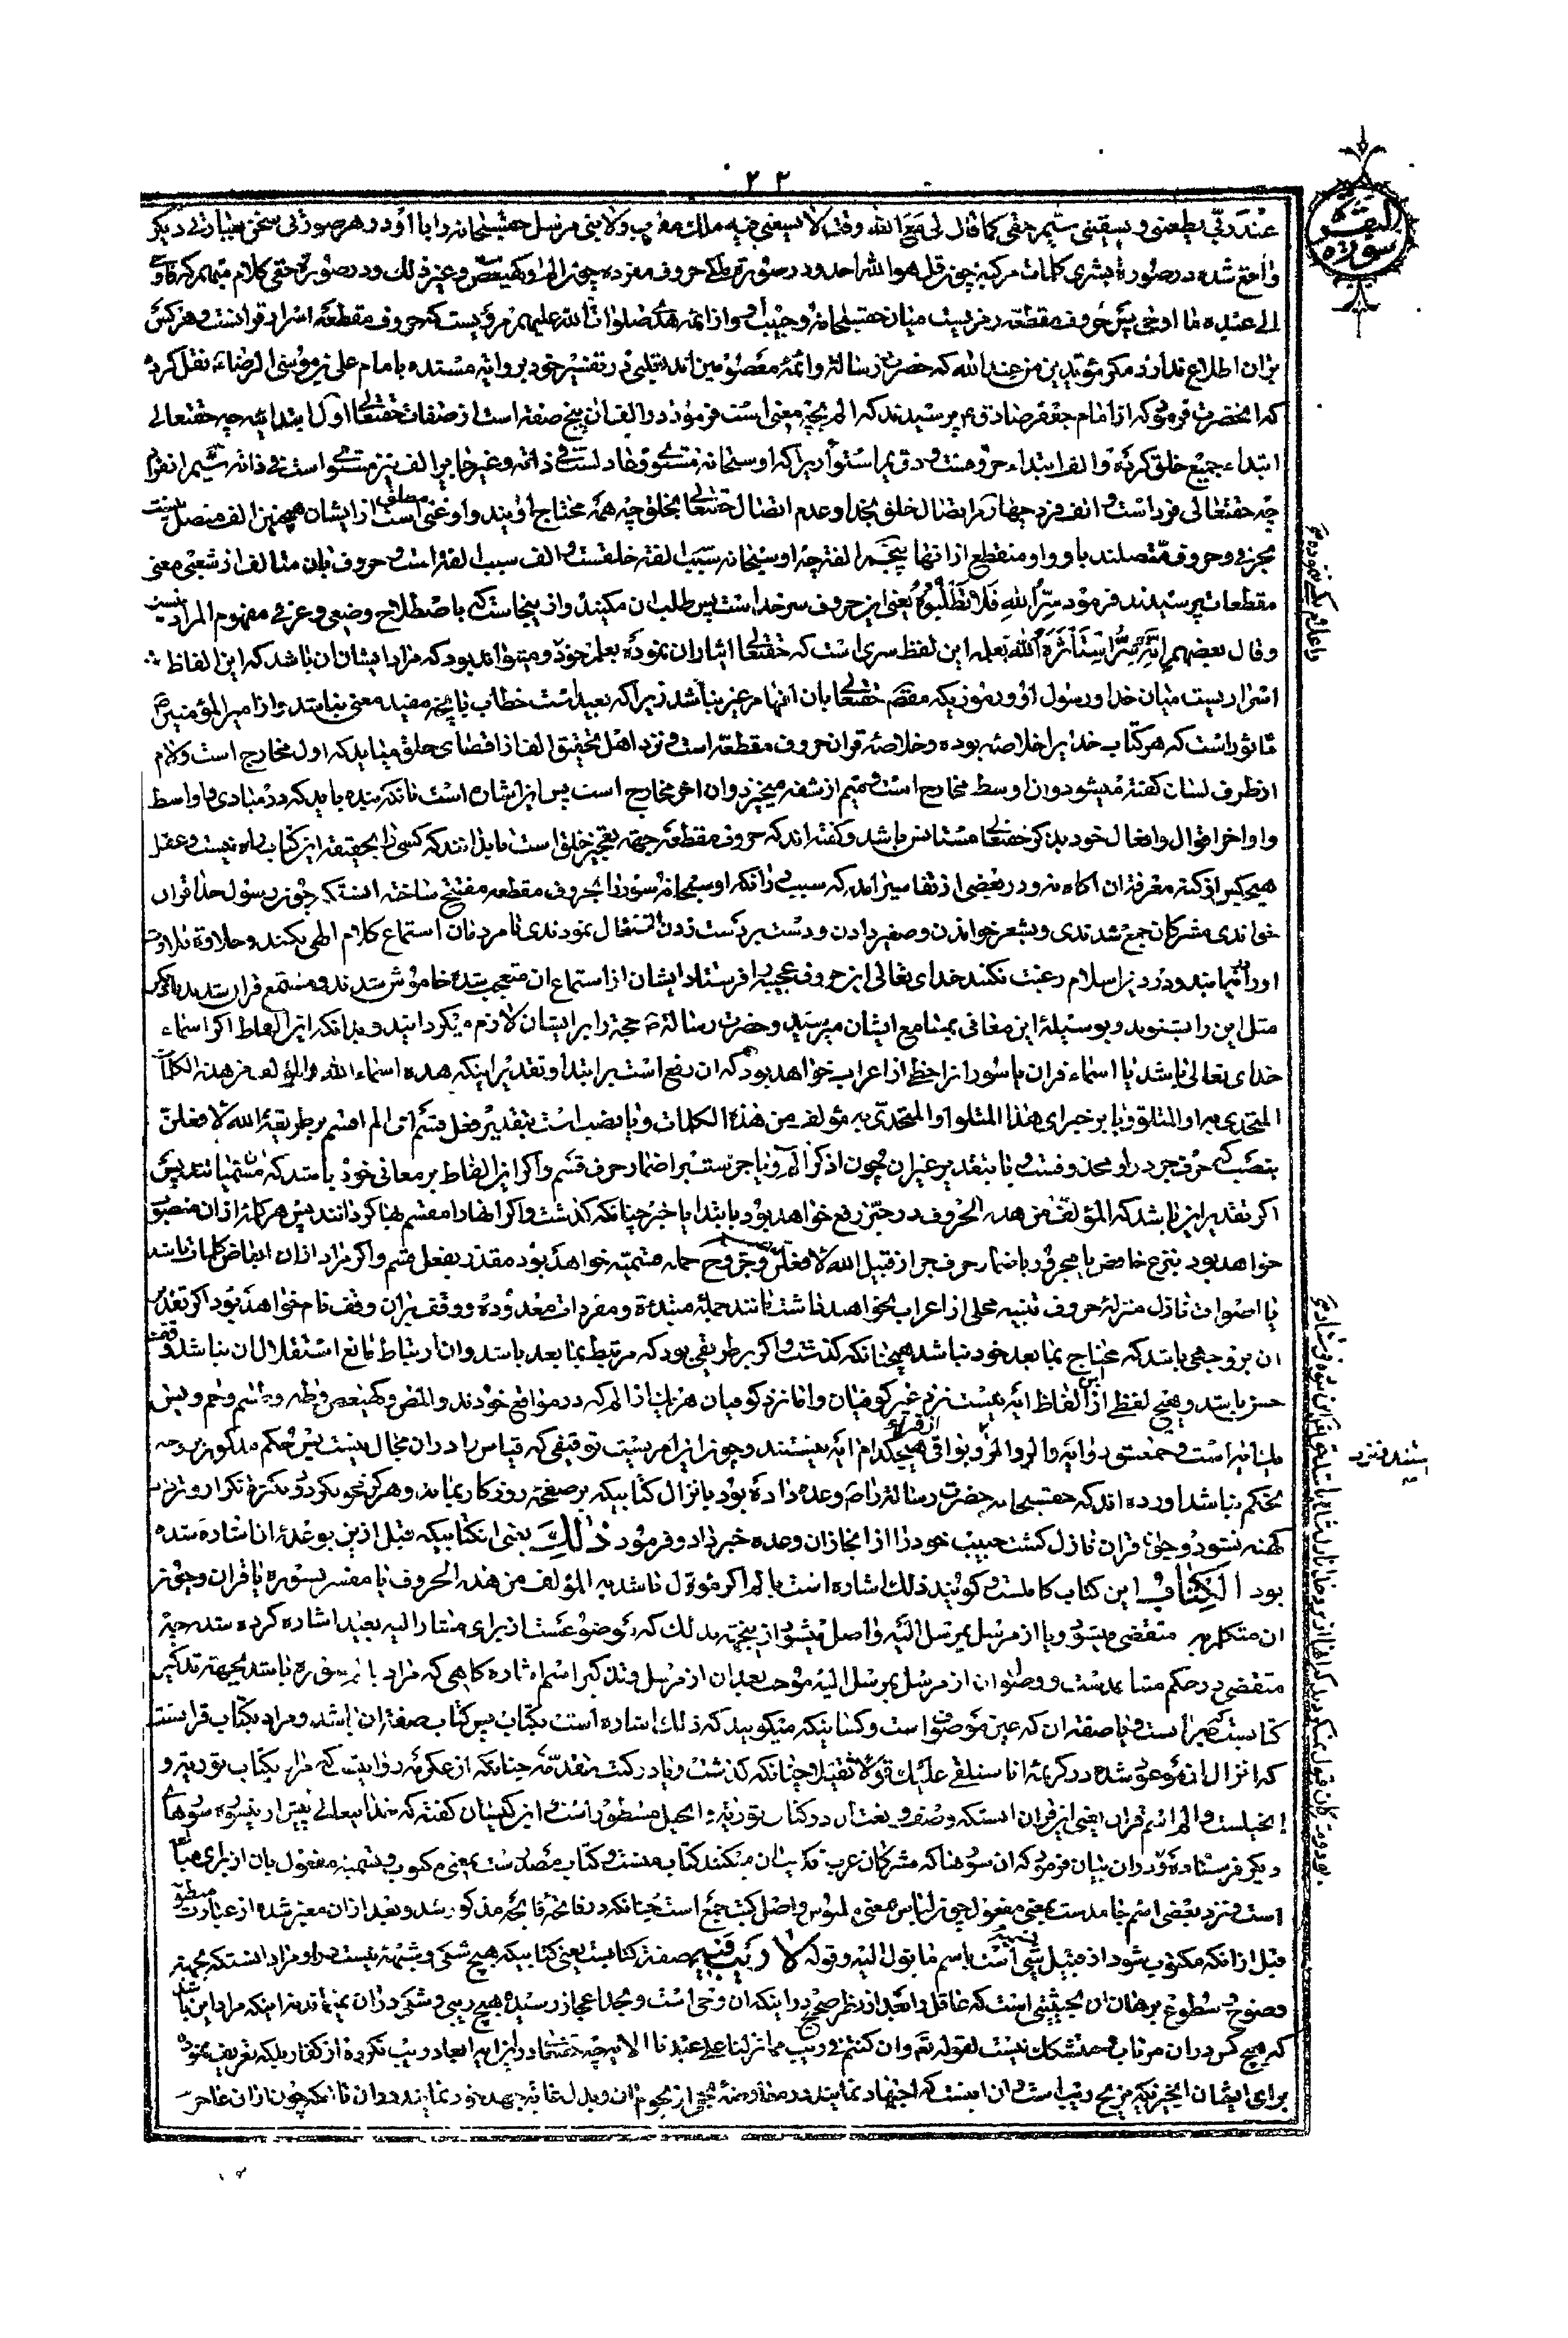 ۲۳
سورة البقرة
عند ربی یطعمنی و یسقینی سیم حقی کما قال لی مع الله وقت لا یسعنی فیه ملك مقرب ولا نبی مرسل حقسبحانه را با او در هر صورتی سخن بعبارتی دیگر
واقع شده در صورة بشری کلمات مرکبه چون قل هو الله احد و در صورة ملکی حروف مفرده چون الم و کهیعص و غیر ذلك و در صورة حقی کلام مبهم که فاوحی
الی عبده ما اوحی پس حروف مقطعه رمزیست میان حقسبحانه و حبیب او و از ائمه هدی صلوات الله علیهم مرویست که حروف مقطعه اسرار قرانست و هر کس
بران اطلاع ندارد مکر مؤتدین من عند الله که حضرت رسالة و ائمهٔ معصومین اند ثعلبی در تفسیر خود بروایة مسنده بامام علی بن موسی الرضاء نقل کرده
که انحضرت فرمود که از امام جعفر صادق ع پرسیدند که الم بچه معنی است فرمود در الف ان پنج صفة است از صفات حقتعالی اول ابتدا چه حقتعالی
ابتداء جمیع خلق کرده و الف ابتداء حروفست دویم استوا زیرا که او سبحانه مستوی و عادلست فی ذاته و غیر جابر الف نیز مستوی است فی ذاته سیم انفراد
چه حقتعالی فرد است و الف فرد چهارم اتصال خلق بخدا و عدم اتصال حقتعالی بخلق چه همه محتاج اویند و او غنی مطلق است از ایشان همچنین الف متصل نیست
بحرفی و حروف متصلند باو و او منقطع از انها پنجم الفة چه او سبحانه سبب الفة خلقست و الف سبب الفة است و حروف بان متالف از شعبی معنی
مقطعات پرسیدند فرمود سِرُّ اللهِ فَلا تَطْلُبُوهُ یعنی این حروف سر خداست پس طلب ان مکنید و از ینجاست که باصطلاح وضعی و عرفی مفهوم المراد نیست
و قال بعضهم اِنَّهُ سِرٌّ اِسْتَأثَرَهُ اللهُ بعلمه این لفظ سری است که حقتعالی ایثار ان نموده بعلم خود و میتواند بود که مراد ایشان ان باشد که این الفاظ
اسراریست میان خدا و رسول او و رموزیکه مقصد حقتعالی بان افهام غیر نباشد زیرا که بعید است خطاب بانچه مفید معنی نباشد و از امیر المؤمنین ع
ماثور است که هر کتاب خدایرا خلاصه بوده و خلاصهٔ قران حروف مقطعه است و نزد اهل تحقیق الف از اقصای حلق میاید که اول مخارج است و لام
از طرف لسان کفته میشود و ان اوسط مخارج است و میم از شفه میخیزد و ان اخر مخارج است پس این اشاره است بانکه بنده باید که در مبادی و اواسط
و اواخر اقوال و افعال خود بذکر حقتعالی مستانس باشد و کفته اند که حروف مقطعه جهة تعجیز خلق است تا بدانند که کسی را بحقیقة این کتاب راه نیست و عقل
هیچکس از کنه معرفة ان اکاه نه و در بعضی از تفاسیر امده که سبب انکه او سبحانه سور را بحروف مقطعه مفتتح ساخته انستکه چون رسول خدا قران
خواندی مشرکان جمع شدندی و بشعر خواندن و صفیر دادن و دست بر دست زدن اشتغال نمودندی تا مردمان استماع کلام الهی نکنند و حلاوة تلاوت
او را نیابند و در دین اسلام رغبت نکنند خدای تعالی این حروف عجیبه را فرستاد ایشان از استماع ان متعجب شده خاموش شدند و مستمع قران شدند
مثل این را بشنوند و بوسیلهٔ این معانی بمسامع ایشان میرسید و حضرت رسالة حجة را بر ایشان لازم میکردانید و بدانکه این الفاظ اکر اسماء
خدای تعالی باشد یا اسماء قران یا سور انرا حظ از اعراب خواهد بود که ان رفع است بر ابتدا و تقدیر اینکه هذه اسماء الله و المؤلف من هذه الکلمات
المتحدی به او المتلو و یا بر خبر ای هذا المتلو او المتحدی به مؤلف من هذه الکلمات و یا نصب است بتقدیر فعل قسم ای الم اقسم بر طریقهٔ الله لافعلن
بنصب که حرف جر در او محذوفست و یا بتقدیر غیر ان چون اذکر الم و یا جرست بر اضمار حرف قسم و اکر این الفاظ بر معانی خود باشد که مسمیاتند پس
اکر تقدیر این باشد که المؤلف من هذه الحروف در حیز رفع خواهد بود بابتدا یا خبر چنانکه کذشت و اکر انها را مقسم بها کردانند پس هر کلمه ازان منصوب
خواهد بود بنزع خافض یا مجرور باضمار حرف جر از قبیل الله لافعلن و جمله قسمیه خواهد بود مقدر بفعل قسم و اکر مراد ازان ابعاض کلمات باشد
یا اصوات نازل منزلهٔ حروف تنبیه محلی از اعراب نخواهد داشت مانند جملهٔ مبتدءة و مفردات معدوده و وقف بران وقف تام خواهد بود اکر تقدیر
ان بر وجهی باشد که محتاج بما بعد خود نباشد همچنانکه کذشت و اکر بر طریقی بود که مرتبط بما بعد باشد و ان ارتباط مانع استقلال ان نباشد وقف
حسن باشد و هیچ لفظ از این الفاظ ایه نیست نزد غیر کوفیان و اما نزد کوفیان هر یك از الم که در مواقع خودند و المص و کهیعص و طه و طسم و حم و یس
یك ایه است و حمعسق دو ایه و الر و المر و بواقی از قرآن هیچکدام ایه نیستند و چون این امریست توقیفی که قیاس را دران مجال نیست پس حکم مذکور بروجه
تحکم نباشد اورده اند که حقسبحانه حضرت رسالة را ص وعده داده بود بانزال کتابیکه بر صفحهٔ روزکار بماند و هرکز محو نکردد و بکثرة تکرار
کهنه نشود و چون قران نازل کشت حبیب خود را از انجاز ان وعده خبر داد و فرمود ذٰلِكَ یعنی انکتابیکه قبل ازین بوعدهٔ ان اشاره شده
بود الْكِتٰابُ این کتاب کاملست و کویند ذلك اشاره است بالم اکر مؤول باشد به المؤلف من هذه الحروف یا مفسر بسوره یا قران و چون
ان متکلم به متقضی میشود و یا از مرسل بمرسل الیه واصل میشود ازینجهة بذلك که موضوعست از برای مشار الیه بعید اشاره کرده شد چه
متقضی در حکم متباعدست و وصول ان از مرسل بمرسل الیه موجب بعد ان از مرسل و تذکیر اسم اشاره کاهی که مراد بالم سوره باشد بجهة تذکیر
کتابست که خبر است و یا صفة ان که عین موصوف است و کسانیکه میکویند که ذلك اشاره است بکتاب پس کتاب صفة ان باشد و مراد بکتاب قرانست
که انزال ان موعود شده در کریمهٔ انا سنلقی علیك قولا ثقیلا چنانکه کذشت و یا در کتب متقدمه چنانکه از عکرمه روایتست که مراد بکتاب توریة و
انجیلست و الم اسم قران یعنی این قران انستکه وصف و نعت ان در کتاب توریة و انجیل مسطور است و ابن کیسان کفته که خدایتعالی پیش از ین سوره سورهای
دیکر فرستاده و دران بیان فرمود که ان سورها که مشرکان عرب تکذیب ان میکنند کتاب منست و کتاب مصدرست بمعنی مکتوب و تسمیهٔ مفعول بان از برای مبالغه
است و نزد بعضی اسم جامدست بمعنی مفعول چون لباس بمعنی ملبوس و اصل کتب جمع است چنانکه در فاتحه مذکور شد و بعد ازان معبر شده از عبارت منطوق
قبل از انکه مکتوب شود از قبیل تسمیهٔ شیء است باسم ما یؤل الیه و قوله لٰا رَیْبَ فیهِ صفة کتابست یعنی کتابیکه هیچ شکی و شبهه نیست در او مراد انستکه بجهة
وضوح و سطوع برهان ان بحیثیتی است که عاقل را بعد از نظر صحیح در اینکه ان وحی است و بحد اعجاز رسیده هیچ ریبی و شکی دران نمیماند نه اینکه مراد این باشد
که هیچ کس دران مرتاب و متشکك نیست لقوله تع وان کنتم فی ریب مما نزلنا علی عبدنا الایه چه حقتعالی در این ایه ابعاد ریب نکرده از کفار بلکه تعریف نموده
برای ایشان انچیزیکه مزیح ریب است و ان اینست که اجتهاد نمایند در معارضهٔ نجمی از نجوم ان و بذل غایة جهد خود نمایند دران تا انکه چون ازان عاجز